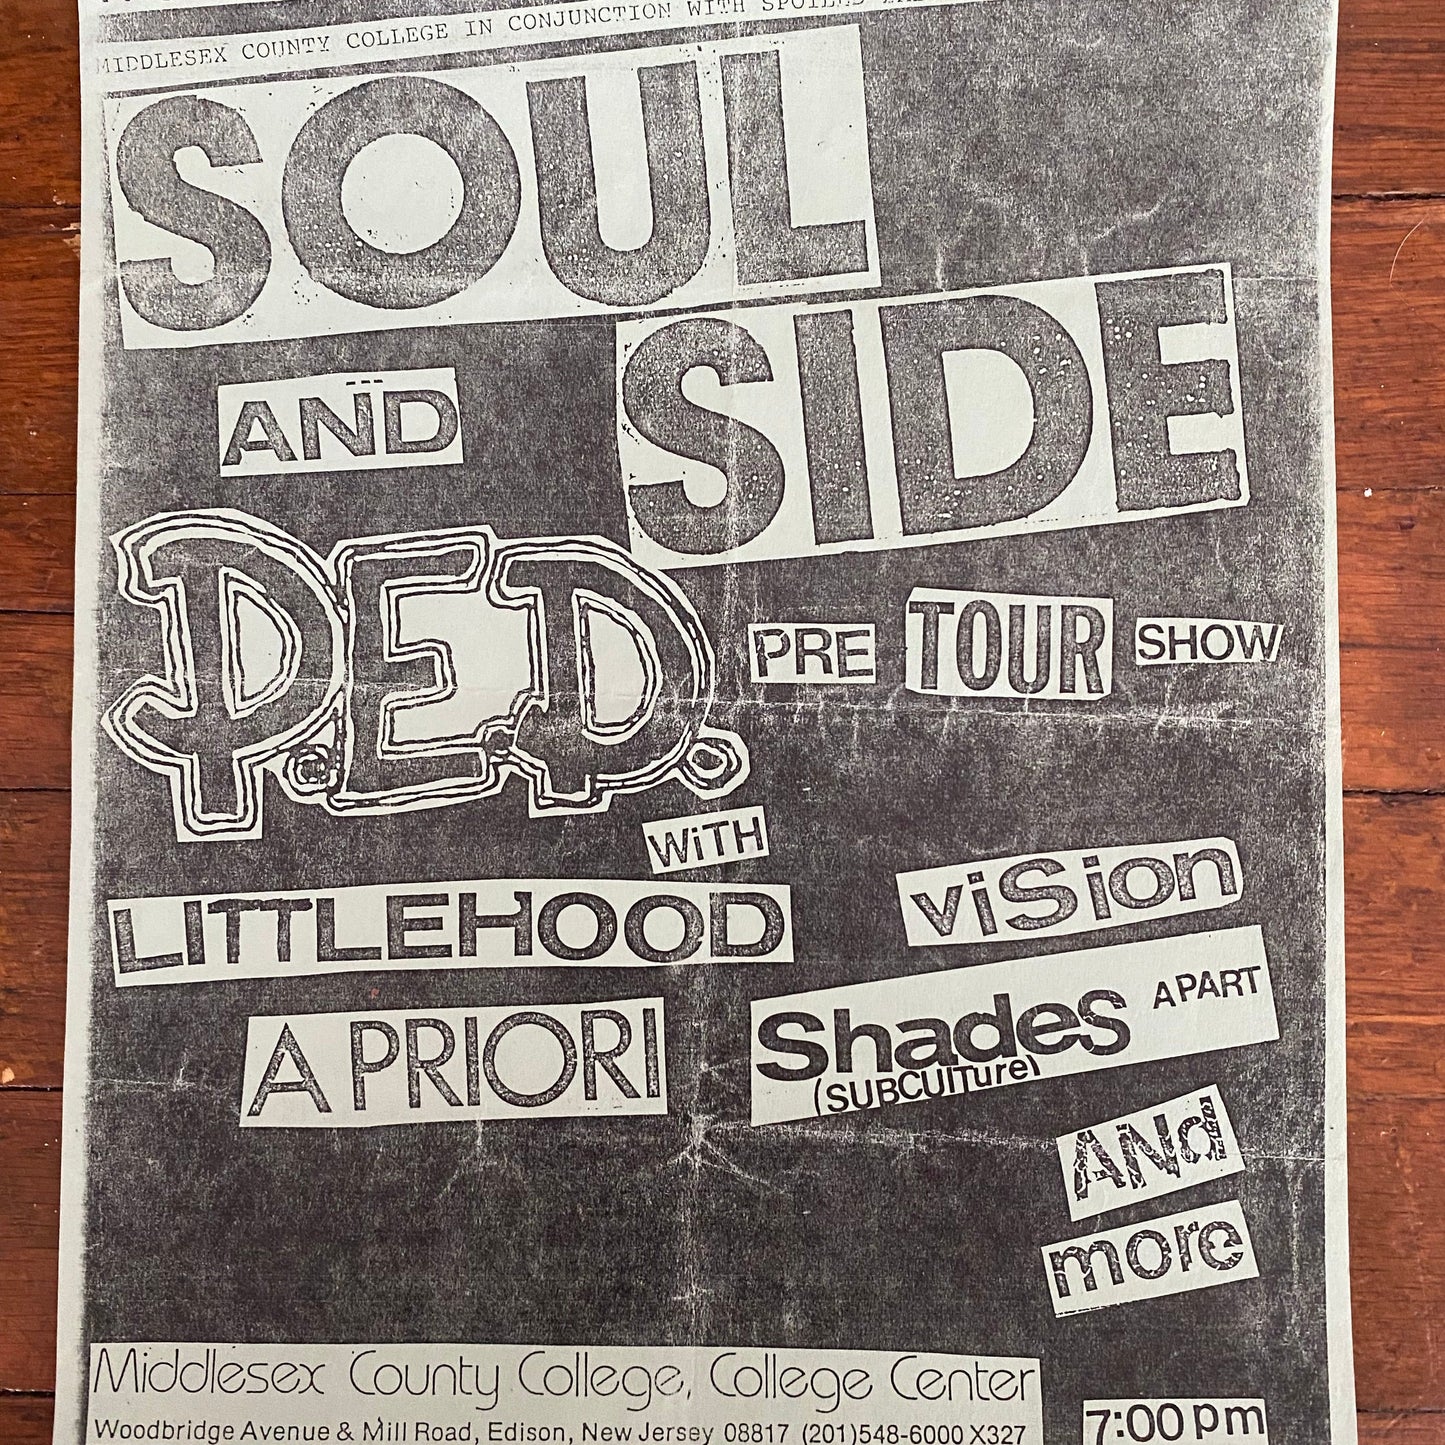 MIDDLESEX COUNTY COLLEGE IN CONJUNCTION WITH
SOUL
SIDE
AND
P.E.D.
PRE TOUR SHOW
WiTH
LITTLEHOOD
viSion
A PRIORI
ShadeS APART
(SUBCUlTure)
ANd
more
Middlesex County College, College Center
Woodbridge Avenue & Mill Road, Edison, New Jersey 08817 (201)548-6000 X327
7:00 pm